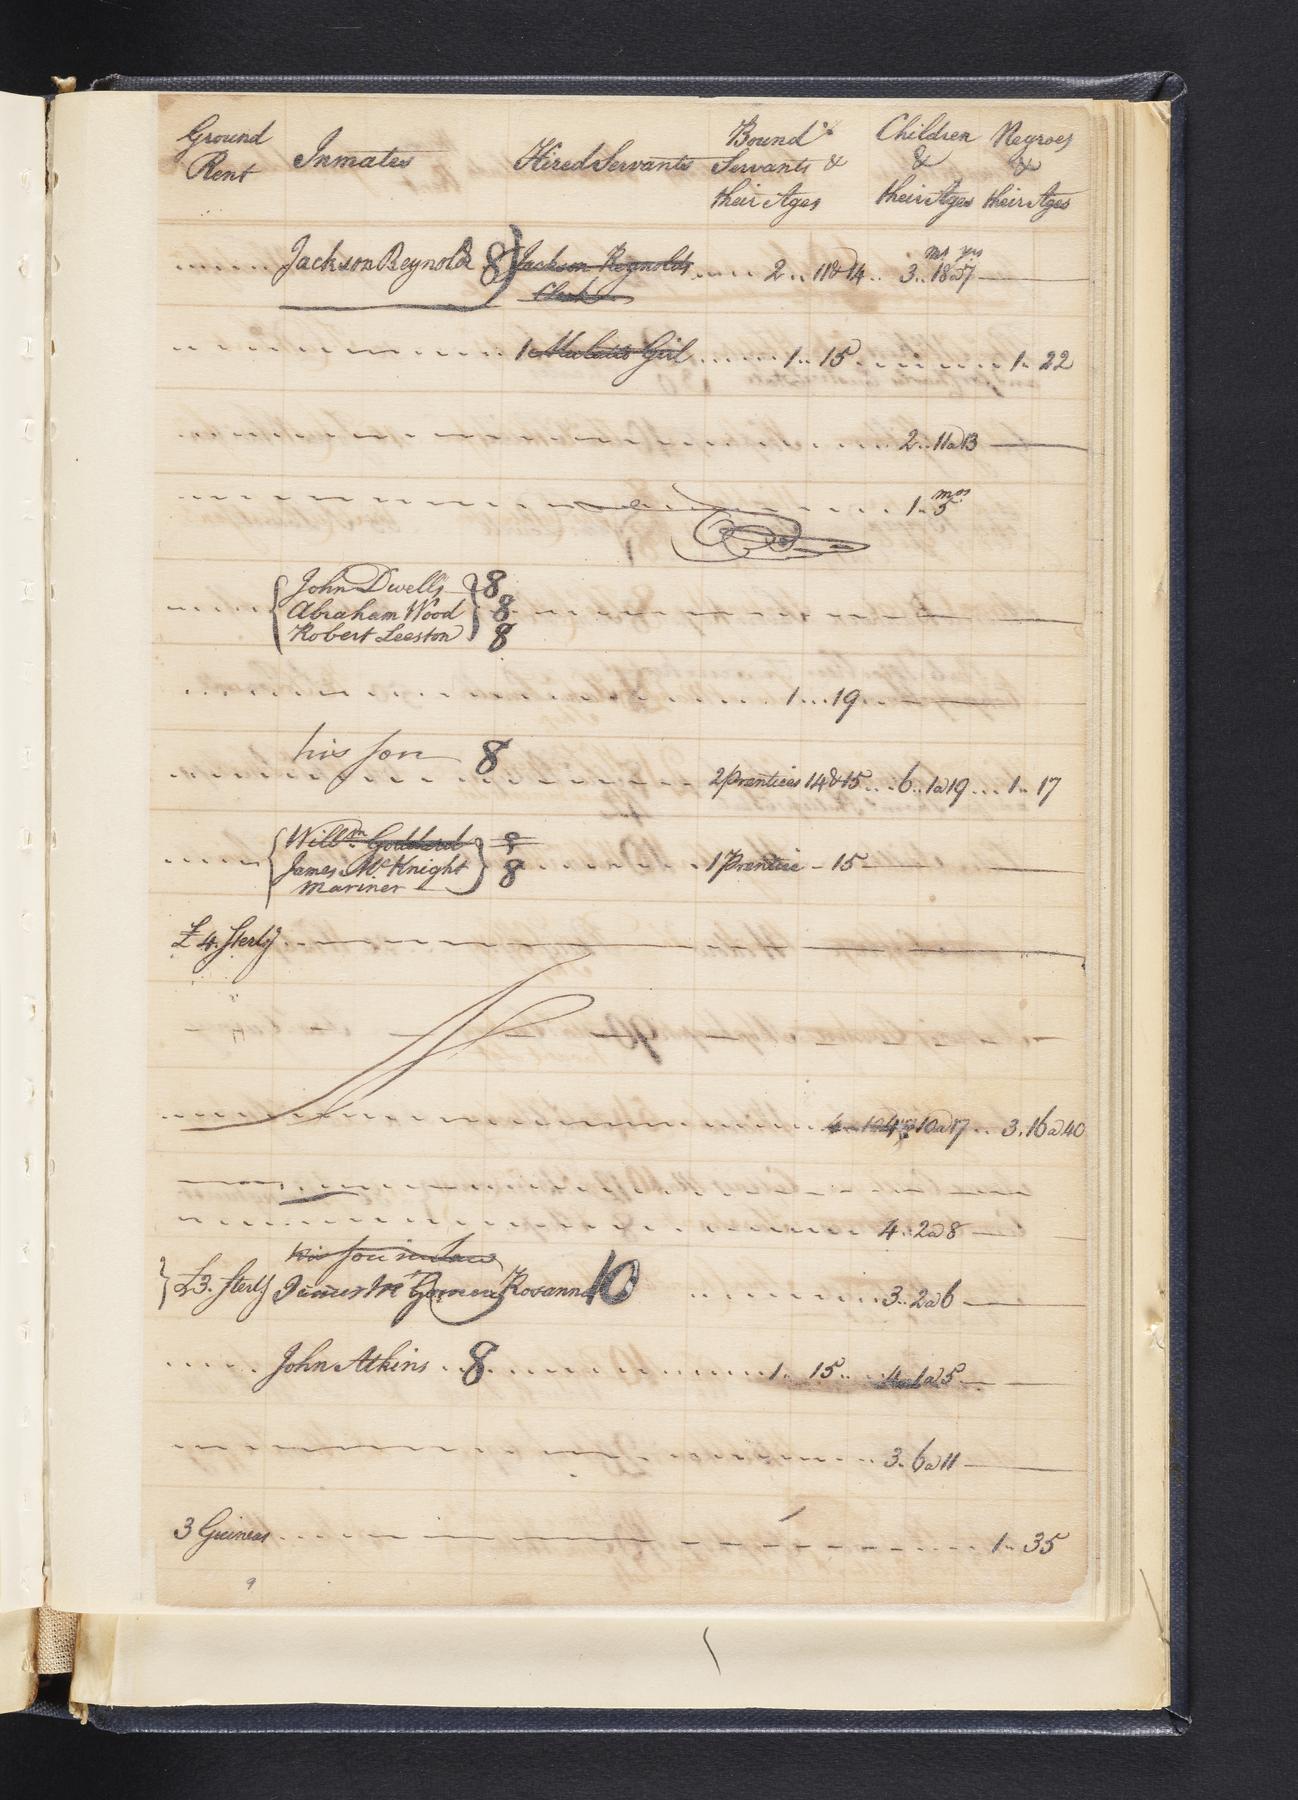 Ground Rent Inmates Hired Servants Bound Servants & their Ages Children & their Ages Negroes & their Ages
Jackson Reynolds 8 Jackson Reynolds 2 11 & 14 3 18 ms a 7 yrs
Clerk
1 Mulatto Girl 1 15 1 22
2 11 a 13
1 5 mos
John Dwells 8
Abraham Wood 8
Robert Leeston 8
1 19
his son 8
2 Prentices 14 & 15 6 1 a 19 1 17
Willm. Goddard 8
James McKnight 8 1 Prentice 15
Mariner
£ 4 Sterlg
4 10 a 17 3 16 a 40
4 2 a 8
his son in Law
£3. Sterlg James Mc Rosanna 10 3 2 a 6
John Atkins 8 1 15 4 1 a 5
3 6 a 11
3 Guineas 1 35
9